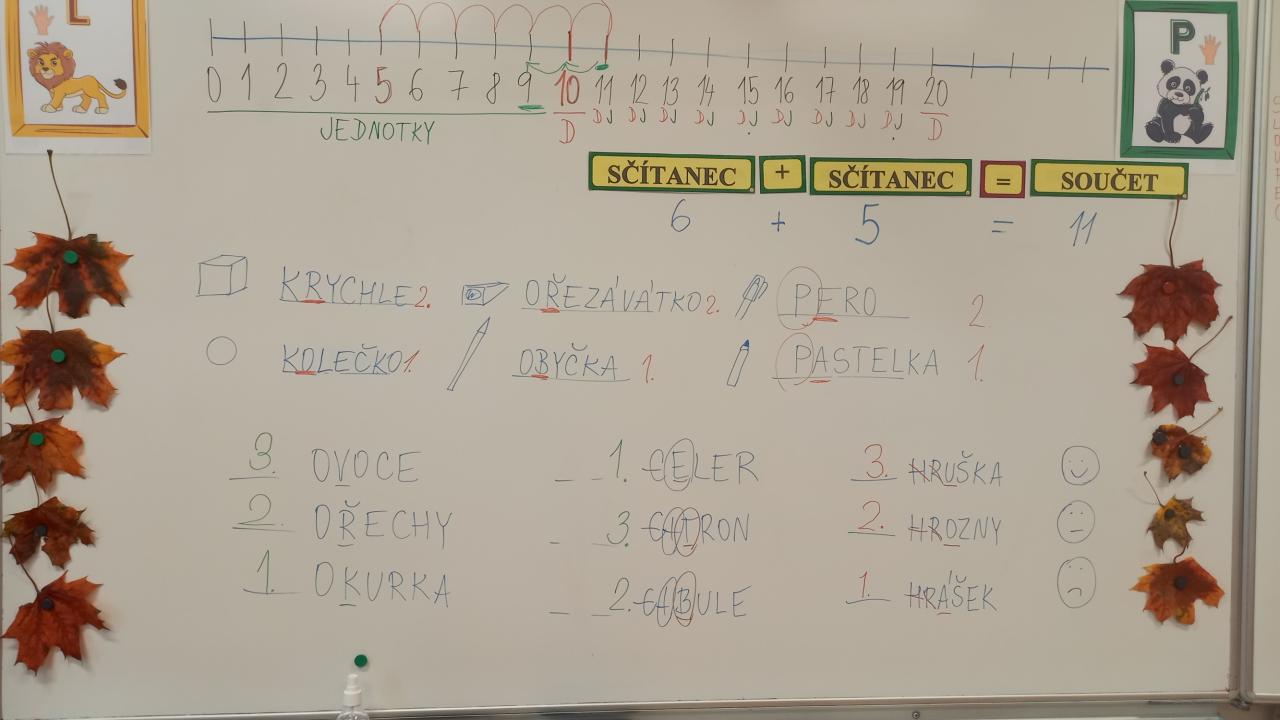 L
P
0 1 2 3 4 5 6 7 8 9 10 11 12 13 14 15 16 17 18 19 20
JEDNOTKY D DJ DJ DJ DJ DJ DJ DJ DJ DJ D
SČÍTANEC + SČÍTANEC = SOUČET
6 + 5 = 11
KRYCHLE 2. OŘEZÁVÁTKO 2. PERO 2
KOLEČKO 1. OBYČKA 1. PASTELKA 1.
3. OVOCE 1. CELER 3. HRUŠKA
2. OŘECHY 3. CITRON 2. HROZNY
1. OKURKA 2. CIBULE 1. HRÁŠEK